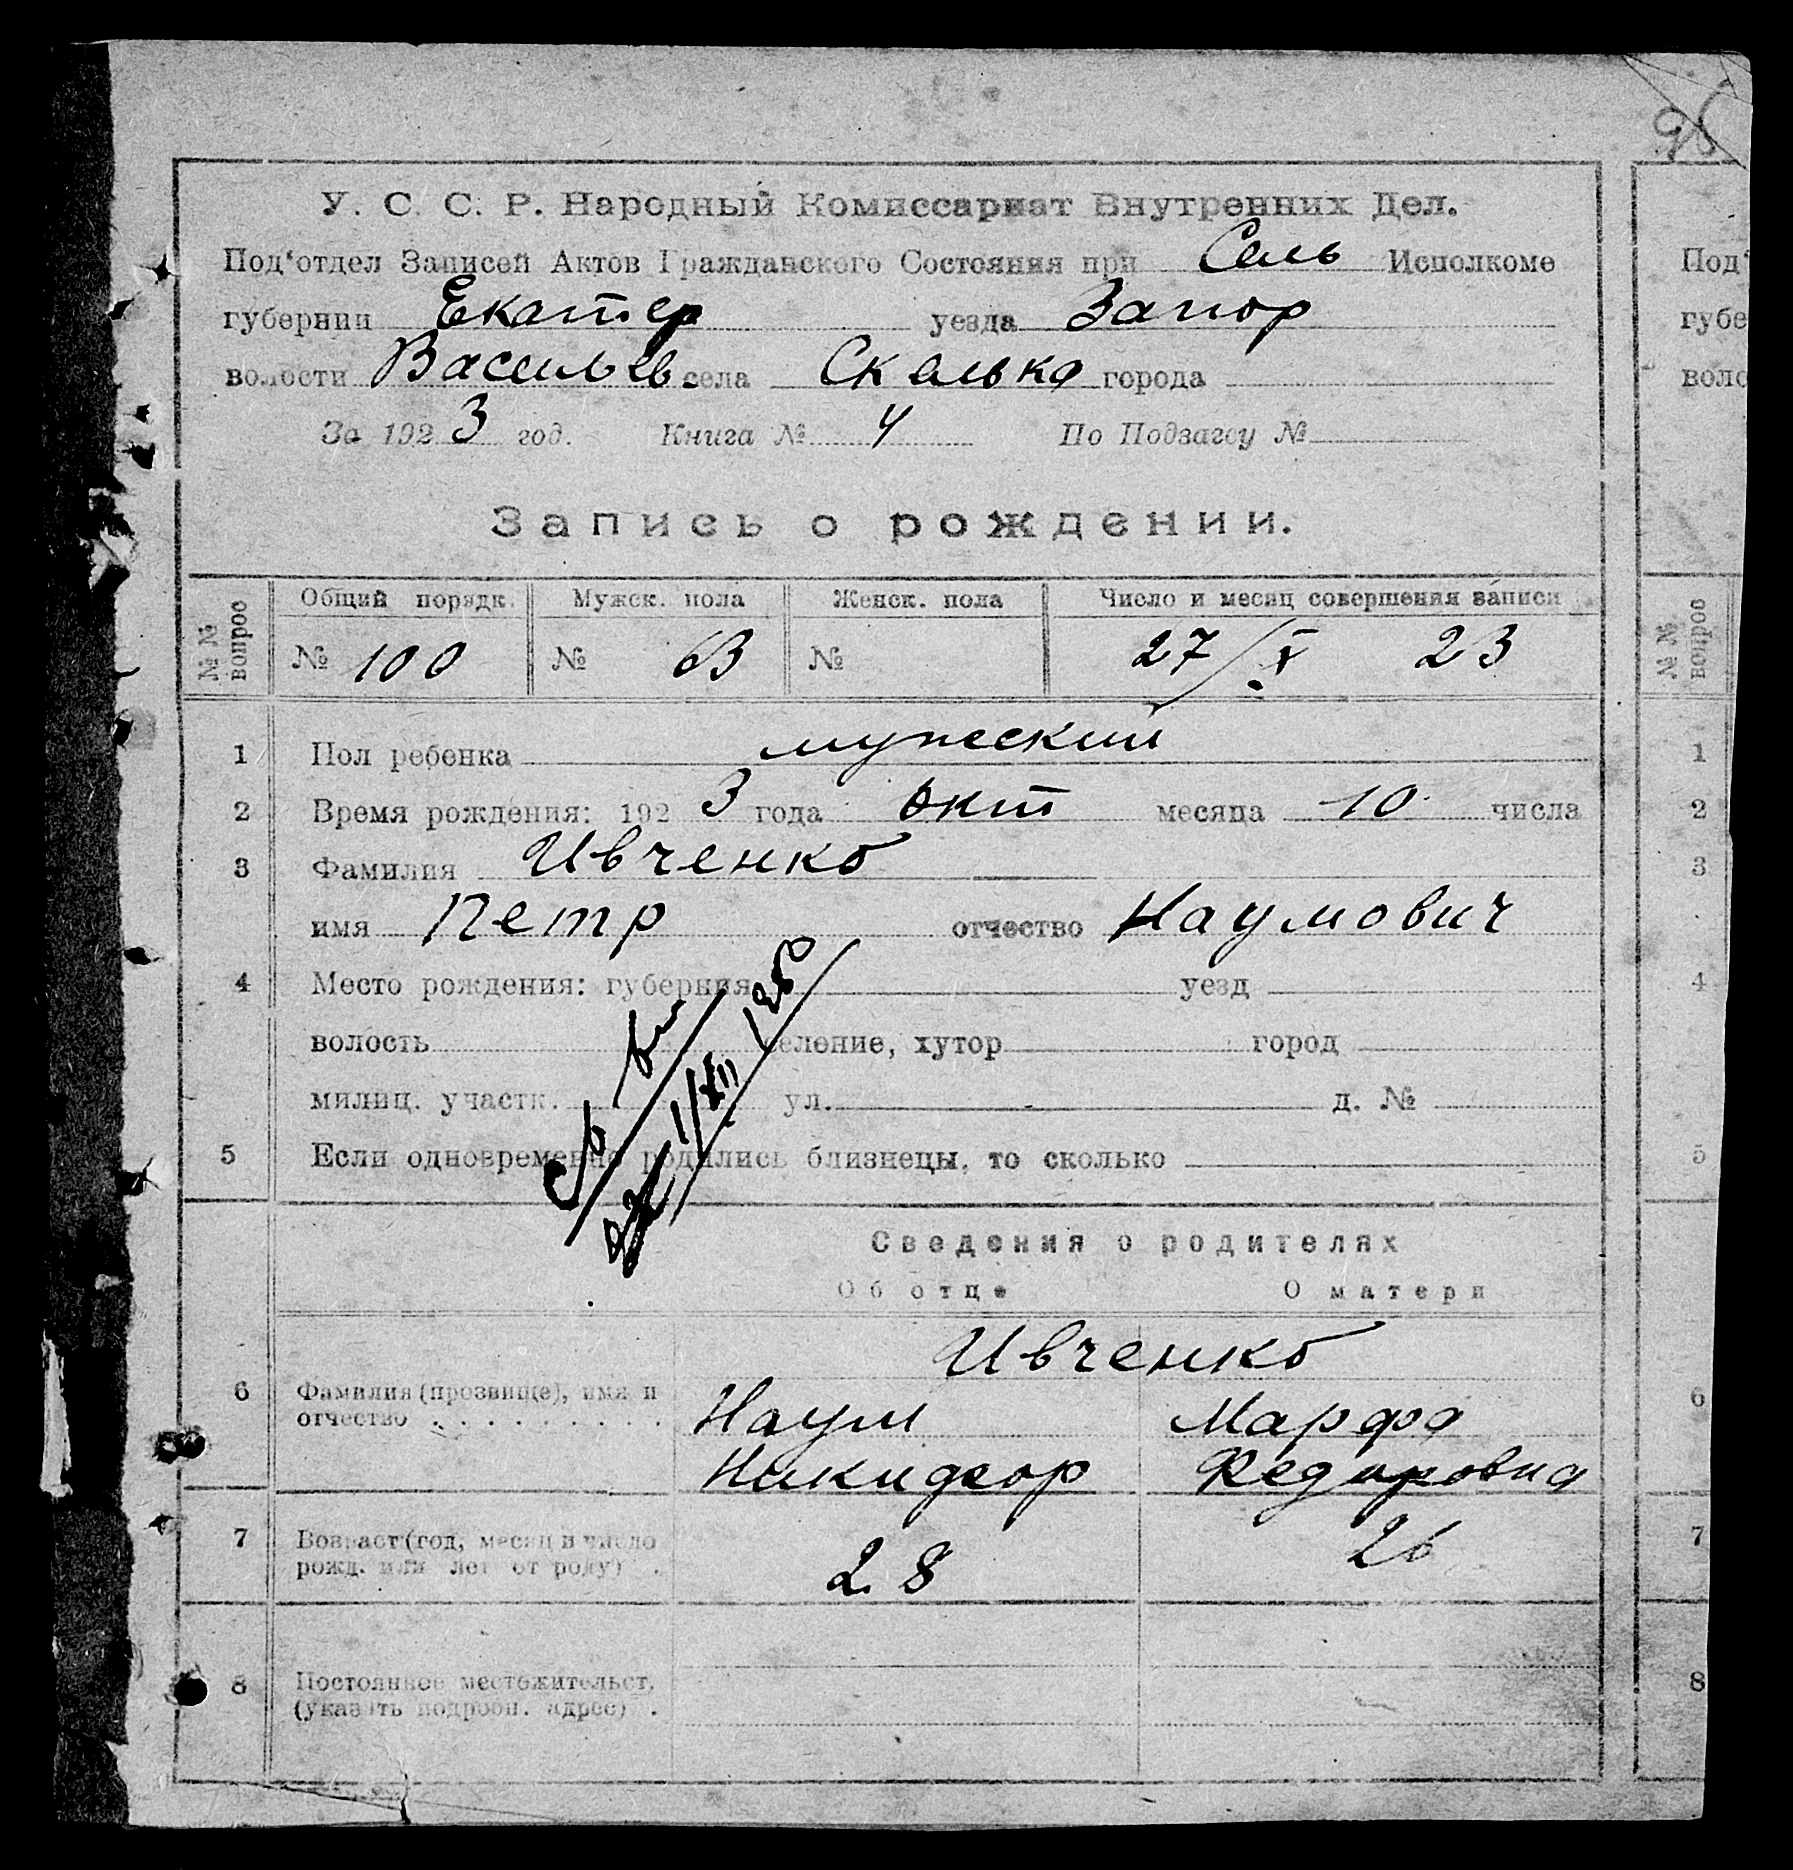 95
У. С. С. Р. Народный Комиссариат Внутренних Дел.
Под‘отдел Записей Актов Гражданского Состояния при Сель Исполкоме
губернии Екатер уезда Запор
волости Васильев. села Скелька города
За 1923 год. Книга № 4 По Подзагсу №
Запись о рождении.
№ № вопрос
Общий порядк. Мужск. пола Женск. пола Число и месяц совершения записи
№ 100 № 63 № 27/X 23
1 Пол ребенка мужеский
2 Время рождения: 1923 года Окт месяца 10 числа
3 Фамилия Ивченко
имя Петр отчество Наумович
4 Место рождения: губерния уезд
волость селение, хутор город
милиц. участк. ул. д. №
5 Если одновременно родились близнецы, то сколько
Сведения о родителях
Об отце О матери
Ивченко
6 Фамилия (прозвище), имя и Наум Марфа
отчество Никифор Федоровна
7 Возраст (год, месяц и число 28 26
рожд. или лет от роду)
8 Постоянное местожительст.
(указать подробн. адрес)
Под‘
губе
воло
№ № вопрос
1
2
3
4
5
6
7
8